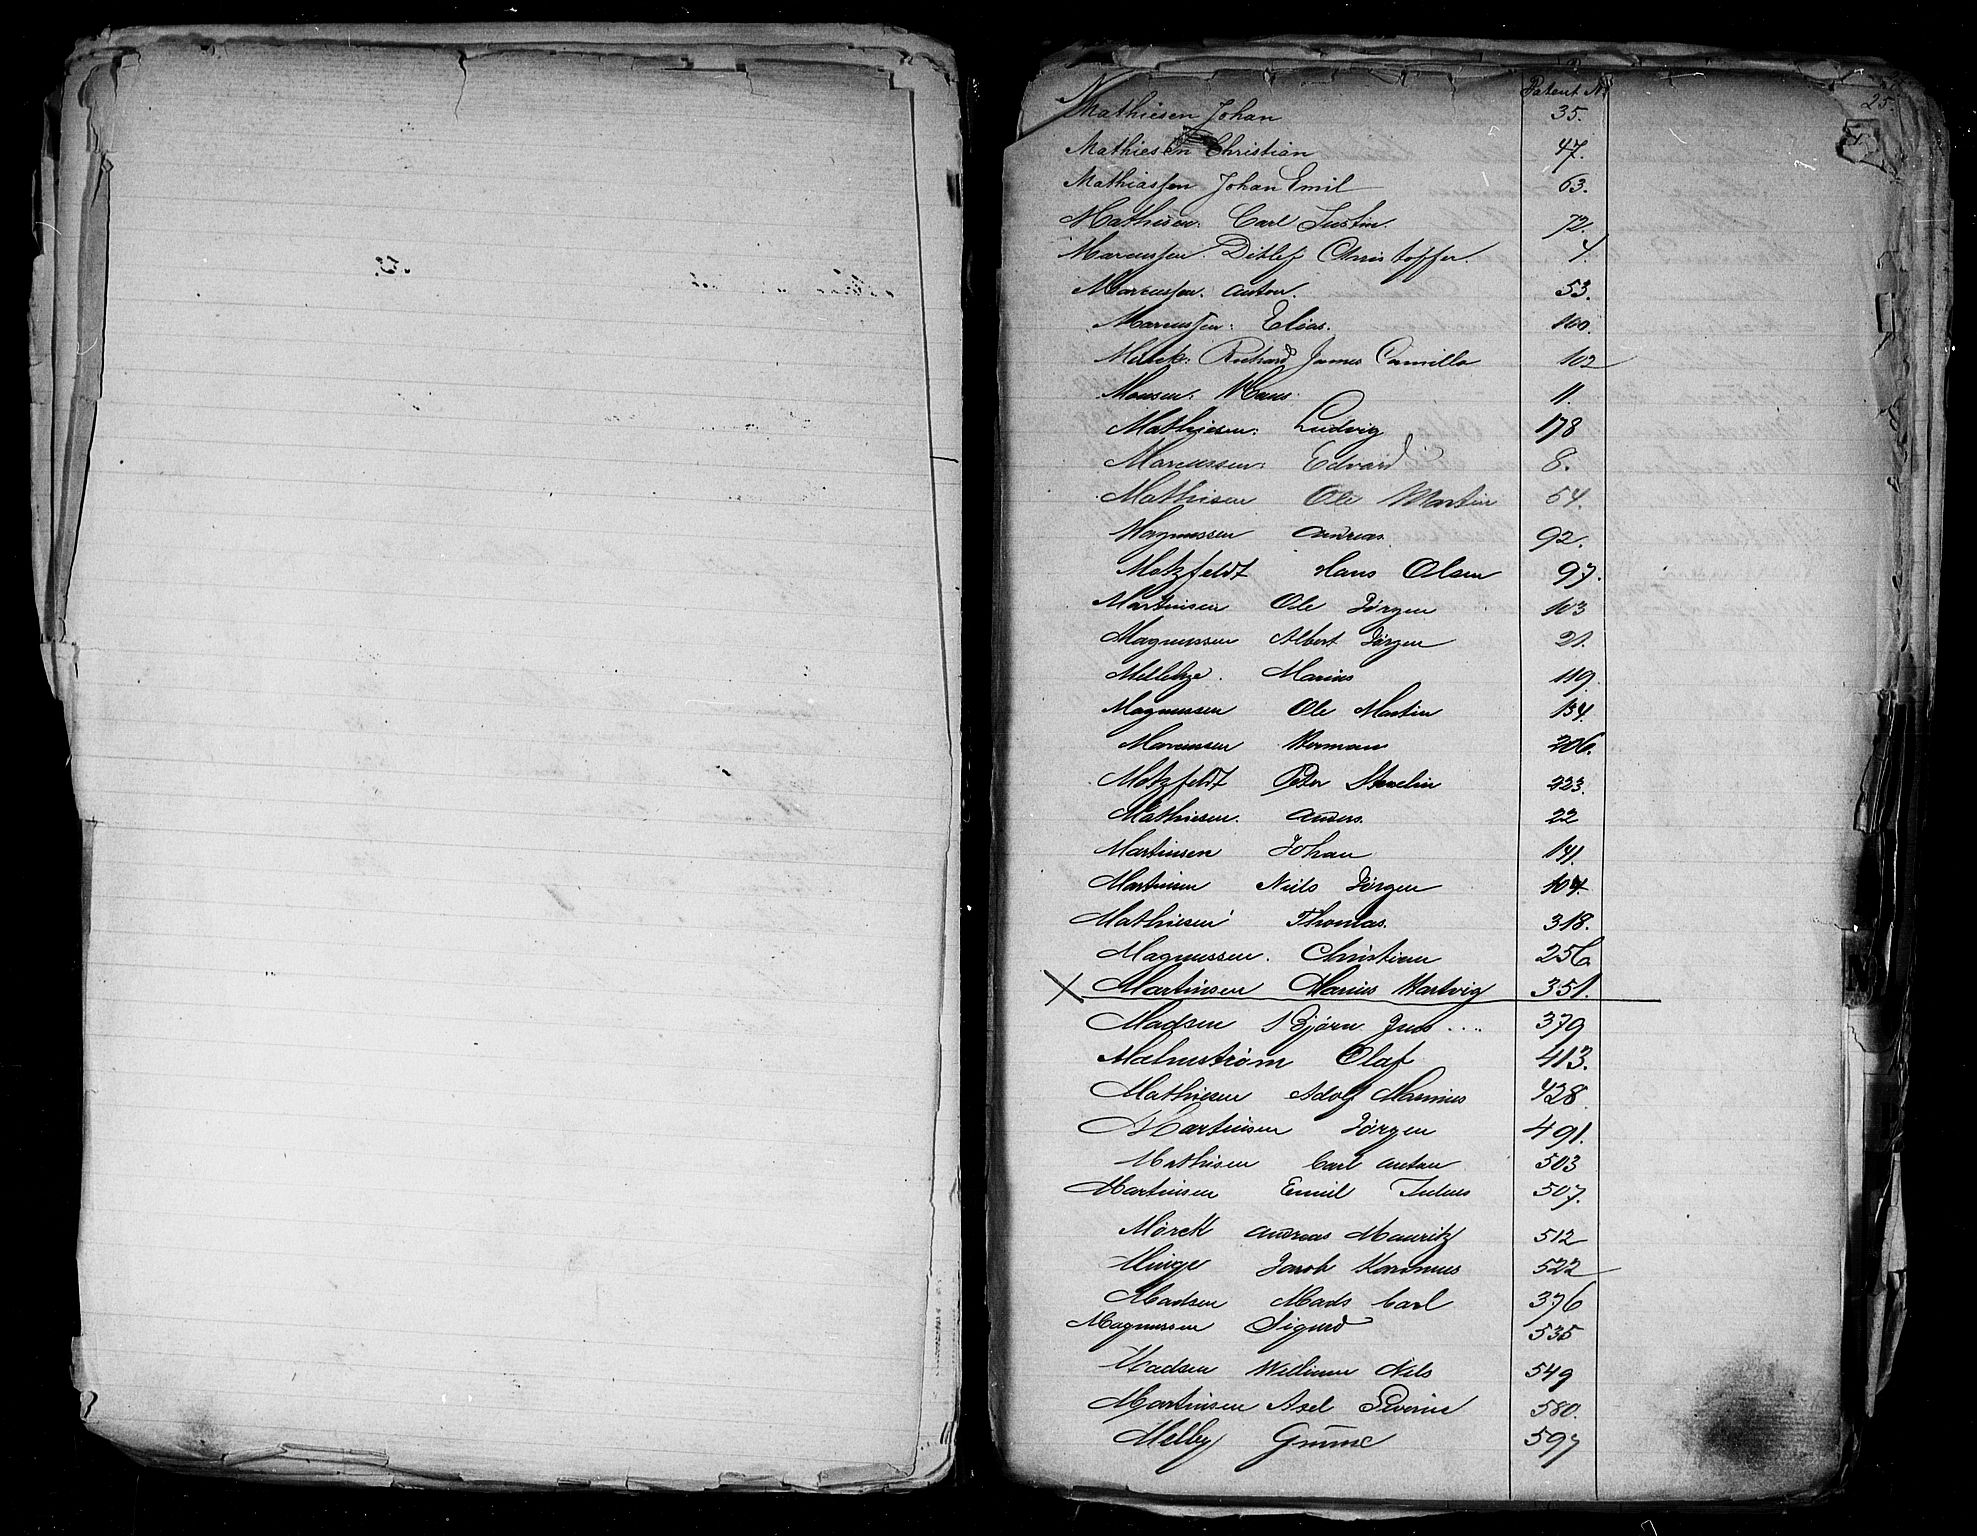 Patent No
25
Mathiesen Johan 35.
Mathiesen Christian 47.
Mathiassen Johan Emil 63.
Mathisen. Carl Justin. 72.
Marcussen. Ditlef Christoffer. 7.
Marcussen. Anton. 53.
Marcussen: Elias. 100.
Mörck: Richard James Camillo 102
Monsen: Hans. 11.
Mathiesen: Ludvig 178
Marcussen: Edvard 8.
Mathisen Ole Martin 54.
Magnussen Andreas. 92.
Motzfeldt Hans Olsen 97.
Martinsen Ole Jörgen 103
Magnussen Albert Jörgen 21.
Marius 119.
Magnussen Ole Martin 134.
Marcussen Herman 206.
Motzfeldt Peter 223.
Mathiesen. Anders. 22
Martinsen Johan 141.
Martinsen Niels Jörgen 104.
Mathiesen Thomas. 318.
Magnussen. Christian 256
X Martinsen Marius Hartvig 351.
Madsen Bjørn Jens 379
Malmstrøm Olaf 413.
Mathiesen Adolf Marinius 428
Martinsen Jörgen 491.
Mathisen Carl Anton 503
Martinsen Emil Julius 507.
Mörck Andreas Mauritz 512
Minge Jacob Rasmus 522
Madsen Mads Carl 376
Magnussen Sigurd 535
Madsen William Nils 549
Martinsen Axel Severin 580.
Melby Gunne 597